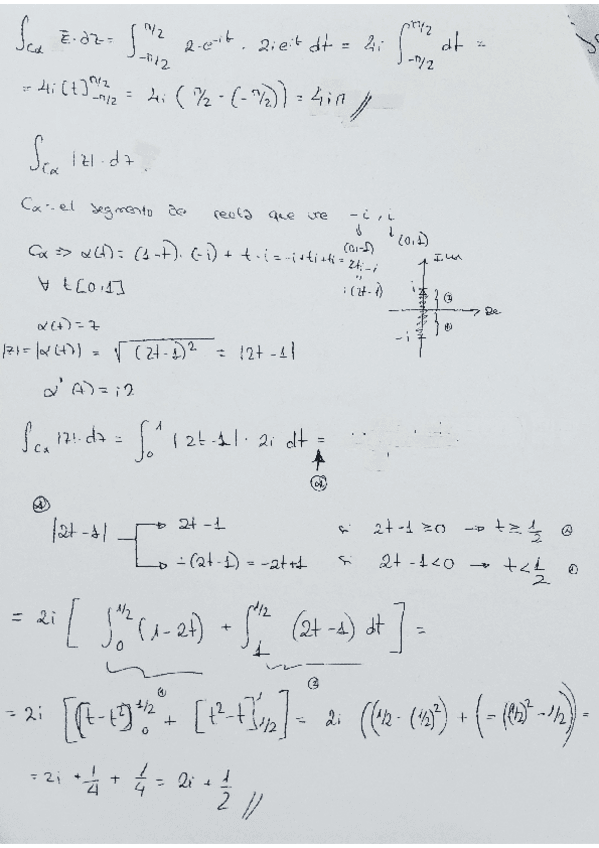 ∫_{Cα} z̄·dz = ∫_{-π/2}^{π/2} 2·e^{-it} · 2ie^{it} dt = 4i ∫_{-π/2}^{π/2} dt =
= 4i [t]_{-π/2}^{π/2} = 4i (π/2 - (-π/2)) = 4iπ //
∫_{Cα} |z|·dz.
Cα = el segmento de recta que va -i, i
(0,-1) (0,1)
Cα => α(t) = (1-t)·(-i) + t·i = -i+ti+ti = 2ti-i
∀ t[0,1]
i(2t-1)
Im
i
Re
-i
α(t) = z
|z| = |α(t)| = √(2t-1)² = |2t-1|
α'(t) = i2
∫_{Cα} |z|·dz = ∫_0^1 |2t-1|·2i dt =
|2t-1| → 2t-1 si 2t-1≥0 → t≥1/2
→ -(2t-1) = -2t+1 si 2t-1<0 → t<1/2
= 2i [ ∫_0^{1/2} (1-2t) + ∫_1^{1/2} (2t-1) dt ] =
= 2i [ [t-t²]_0^{1/2} + [t²-t]_{1/2}^1 ] = 2i ((1/2 - (1/2)²) + (-(1/2)² - 1/2)) =
= 2i + 1/4 + 1/4 = 2i + 1/2 //